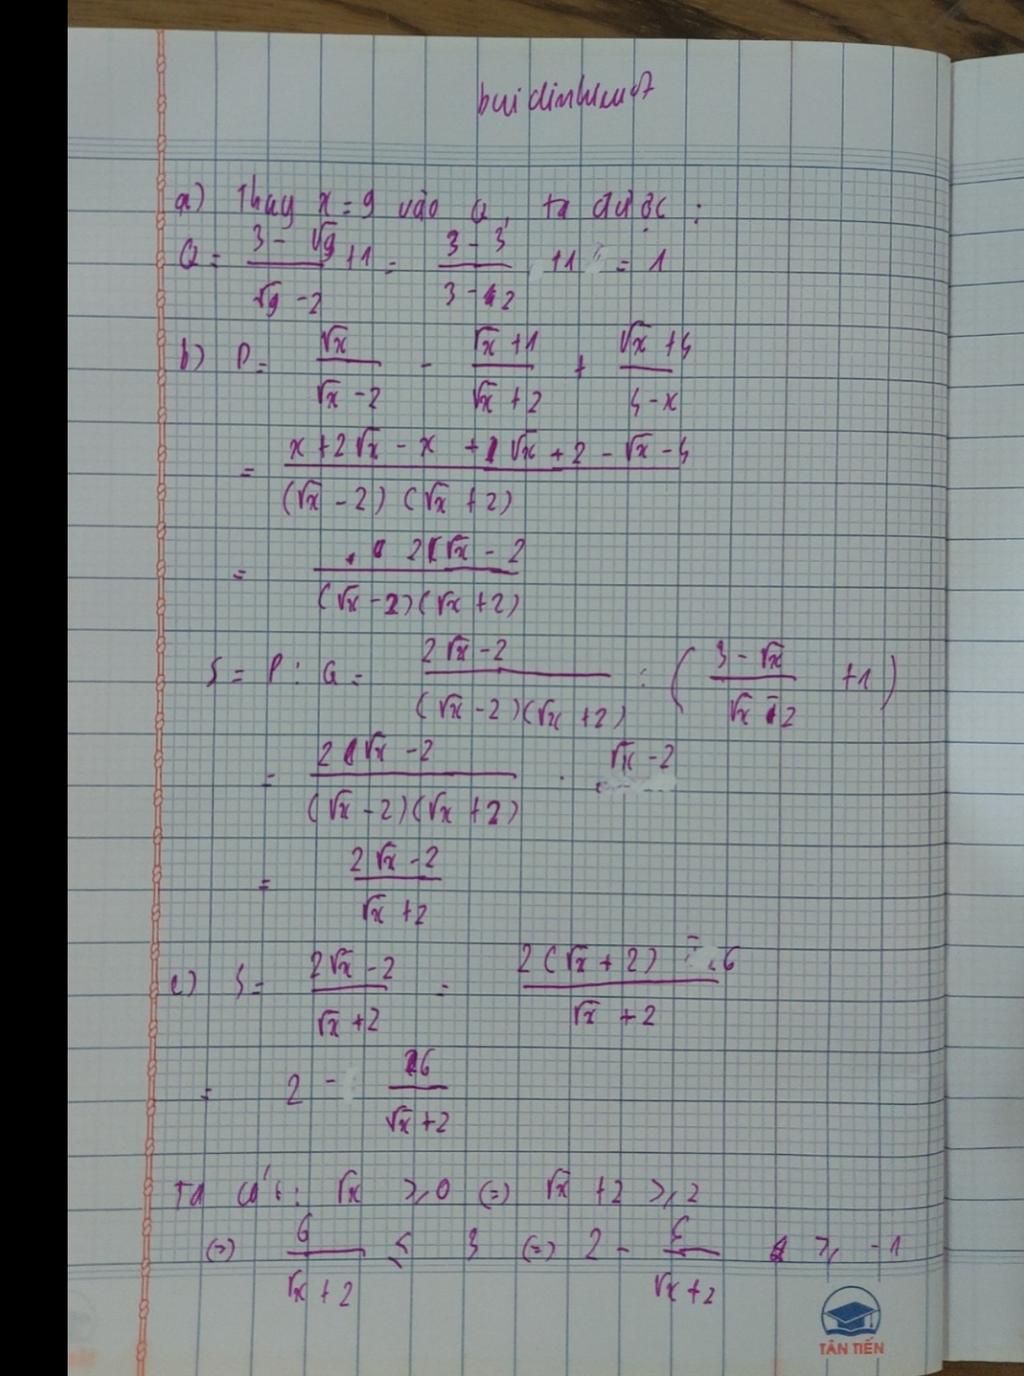 a) Thay x = 9 vào Q, ta được :
Q = (3 - √9)/(√9 - 2) + 1 = (3 - 3)/(3 - 2) + 1 = 1
b) P = √x/(√x - 2) - (√x + 1)/(√x + 2) + (√x + 4)/(4 - x)
= (x + 2√x - x + 1√x + 2 - √x - 4)/((√x - 2)(√x + 2))
= (2√x - 2)/((√x - 2)(√x + 2))
S = P : Q = (2√x - 2)/((√x - 2)(√x + 2)) : ((3 - √x)/(√x - 2) + 1)
= (2√x - 2)/((√x - 2)(√x + 2)) . √x - 2
= (2√x - 2)/(√x + 2)
c) S = (2√x - 2)/(√x + 2) = (2(√x + 2) - 6)/(√x + 2)
= 2 - 6/(√x + 2)
Ta có : √x ≥ 0 (=) √x + 2 ≥ 2
(=) 6/(√x + 2) ≤ 3 (=) 2 - 6/(√x + 2) ≥ -1
TÂN TIẾN